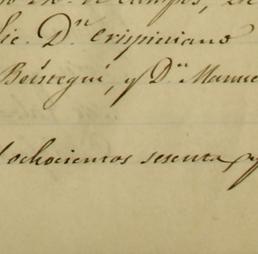 de Campos, De
Lic. Dn Crispiniano
Beistegui, y Dn Manue
ochocientos sesenta y